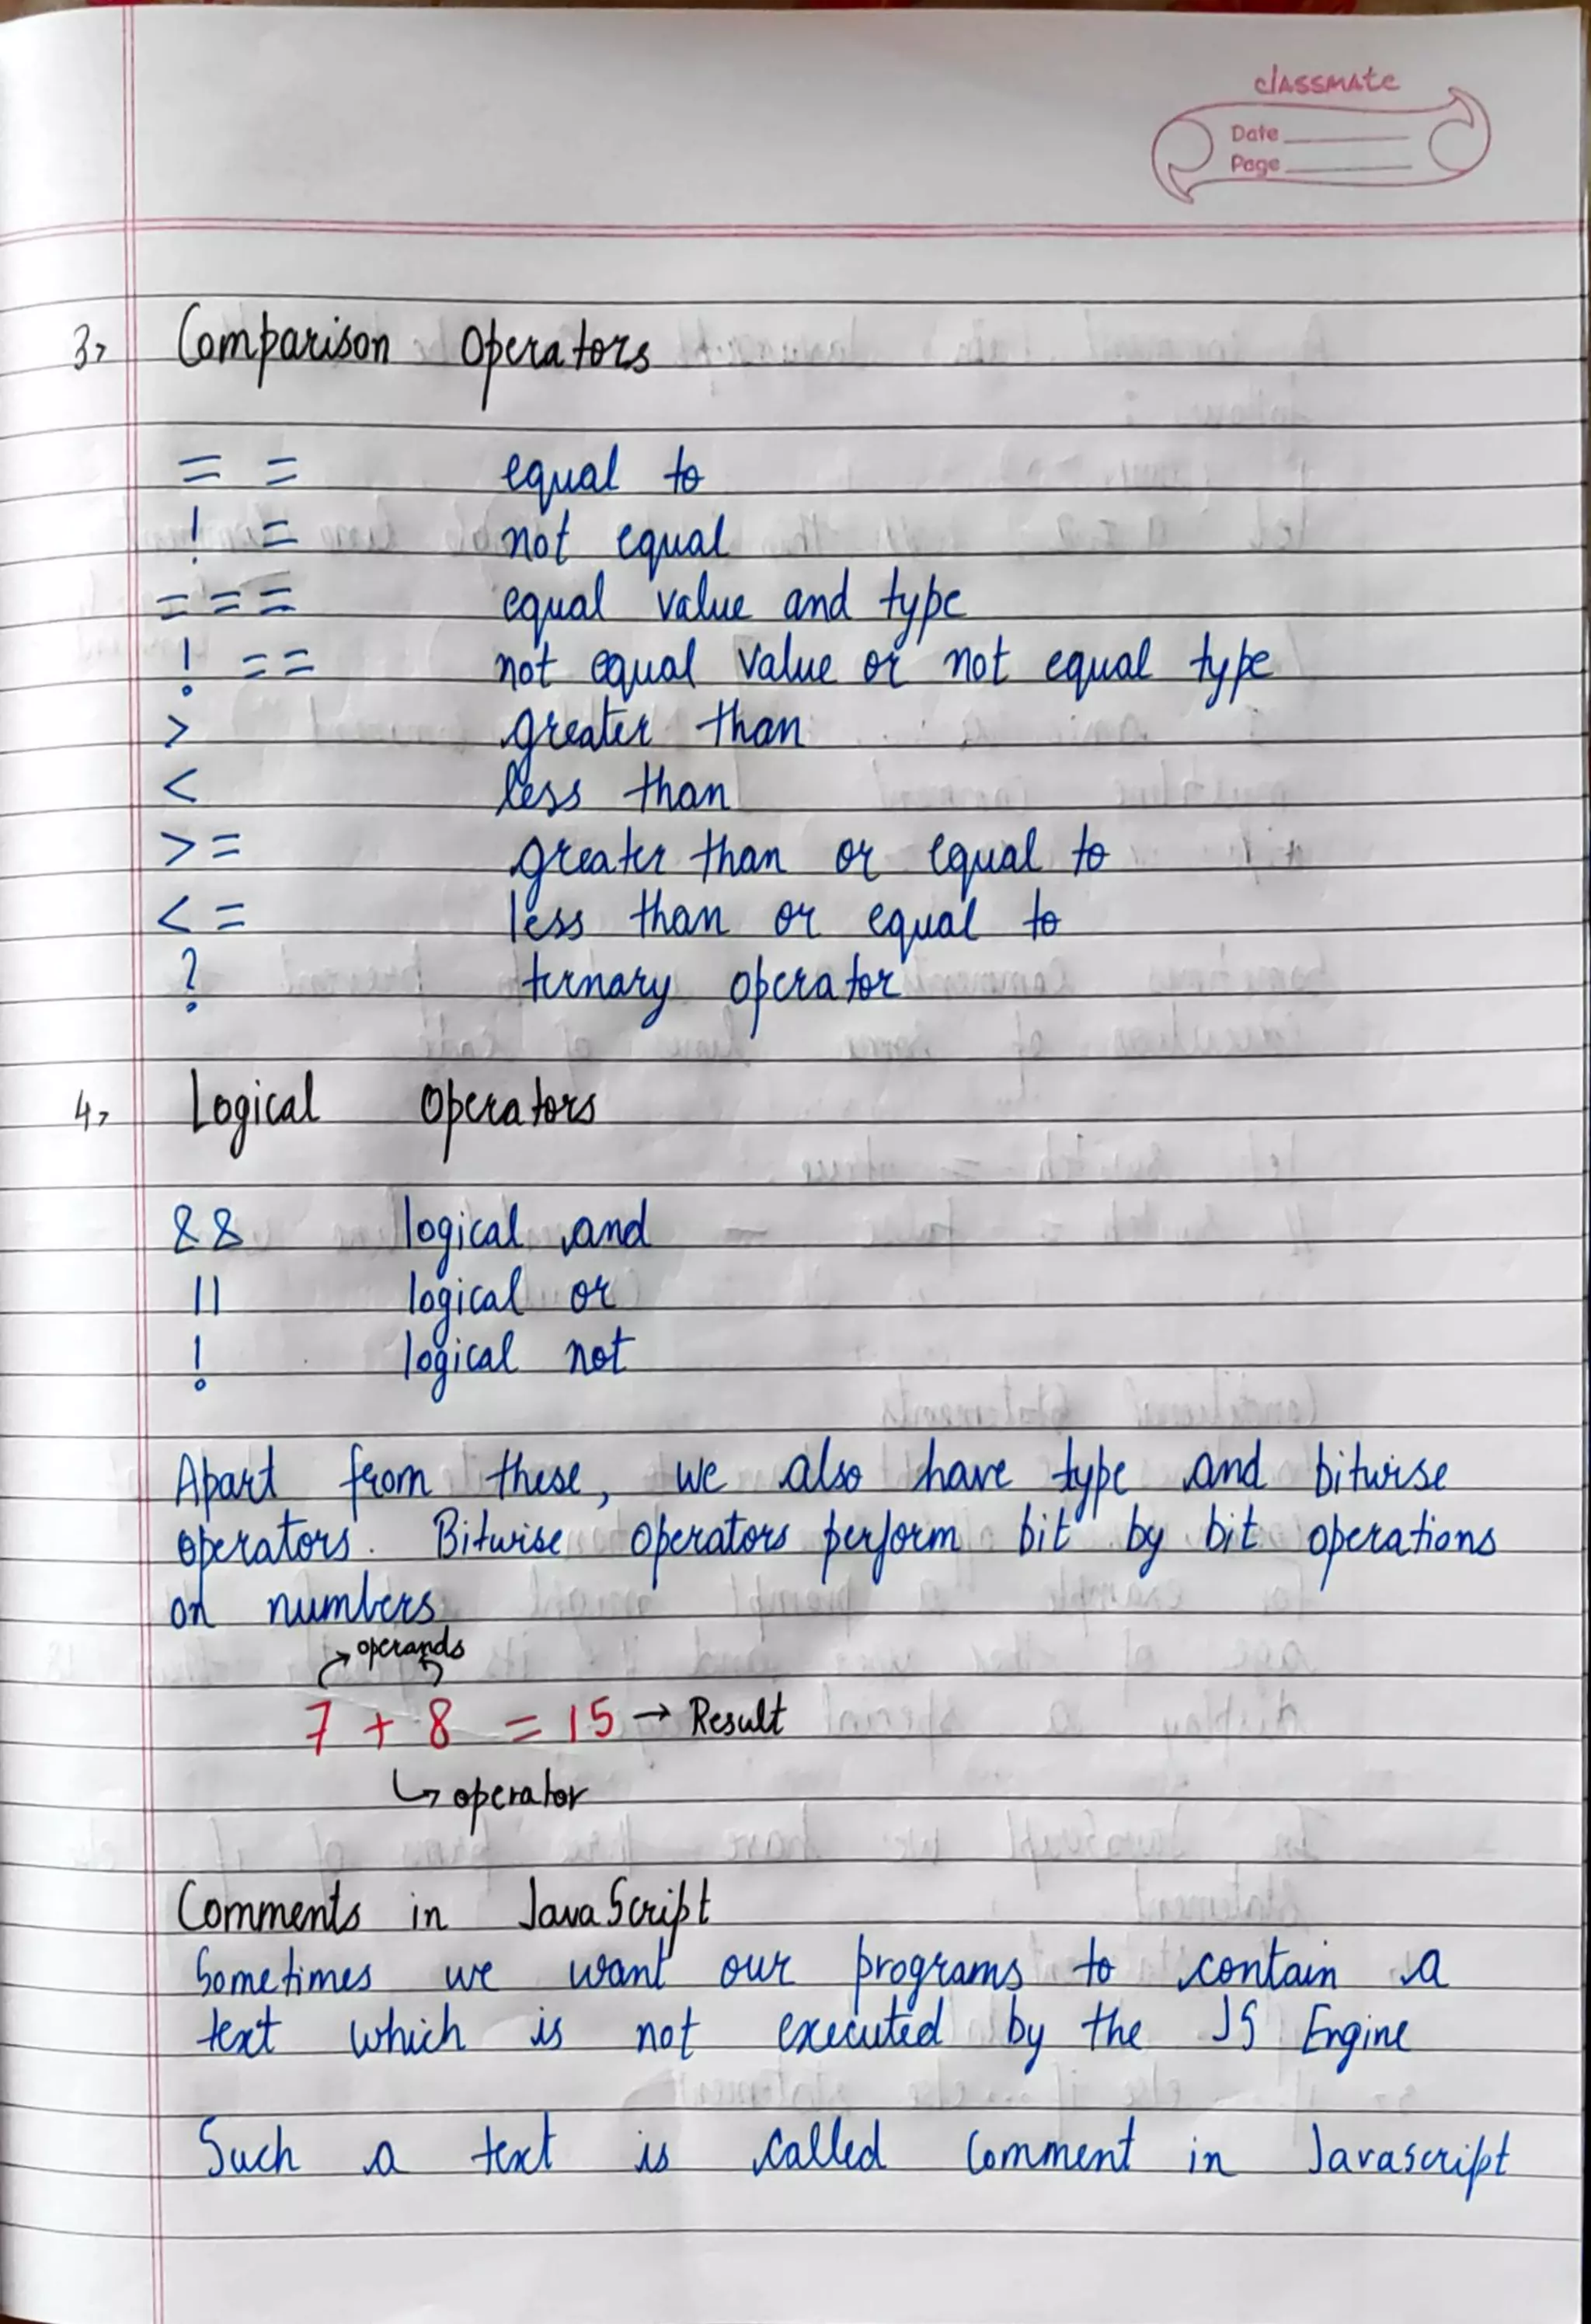 classmate
Date
Page
3> Comparison Operators
= = equal to
! = not equal
= = = equal value and type
! = = not equal value or not equal type
> greater than
< less than
> = greater than or equal to
< = less than or equal to
? ternary operator
4> Logical Operators
&& logical and
|| logical or
! logical not
Apart from these, we also have type and bitwise
operators. Bitwise operators perform bit by bit operations
on numbers
→ operands
7 + 8 = 15 → Result
↳ operator
Comments in JavaScript
Sometimes we want our programs to contain a
text which is not executed by the JS Engine
Such a text is called Comment in Javascript